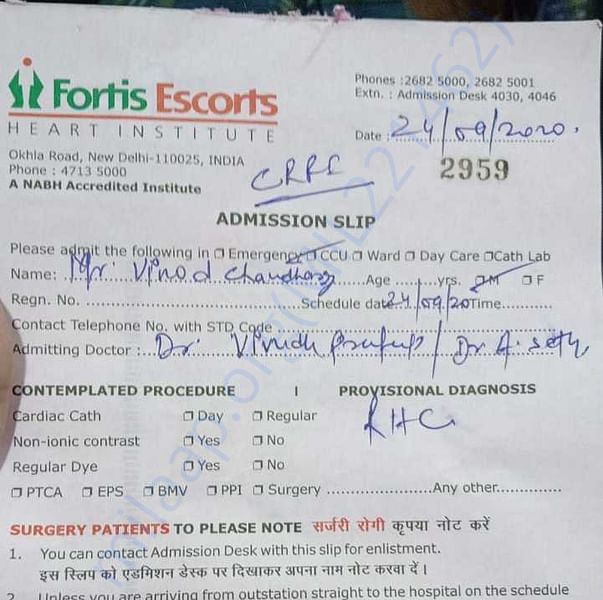 Fortis Escorts
HEART INSTITUTE
Okhla Road, New Delhi-110025, INDIA
Phone : 4713 5000
A NABH Accredited Institute
Phones : 2682 5000, 2682 5001
Extn. : Admission Desk 4030, 4046
Date : 24/09/2020.
2959
ADMISSION SLIP
Please admit the following in □ Emergency □ CCU □ Ward □ Day Care □ Cath Lab
Name: Mr. Vinod Chaudhary Age ........yrs. □ M □ F
Regn. No. ........ Schedule date 24/09/20 Time........
Contact Telephone No. with STD Code ........
Admitting Doctor : Dr. / Dr A. Seth
CONTEMPLATED PROCEDURE | PROVISIONAL DIAGNOSIS
RHC
Cardiac Cath □ Day □ Regular
Non-ionic contrast □ Yes □ No
Regular Dye □ Yes □ No
□ PTCA □ EPS □ BMV □ PPI □ Surgery ........ Any other........
SURGERY PATIENTS TO PLEASE NOTE सर्जरी रोगी कृपया नोट करें
1. You can contact Admission Desk with this slip for enlistment.
इस स्लिप को एडमिशन डेस्क पर दिखाकर अपना नाम नोट करवा दें ।
2. Unless you are arriving from outstation straight to the hospital on the schedule